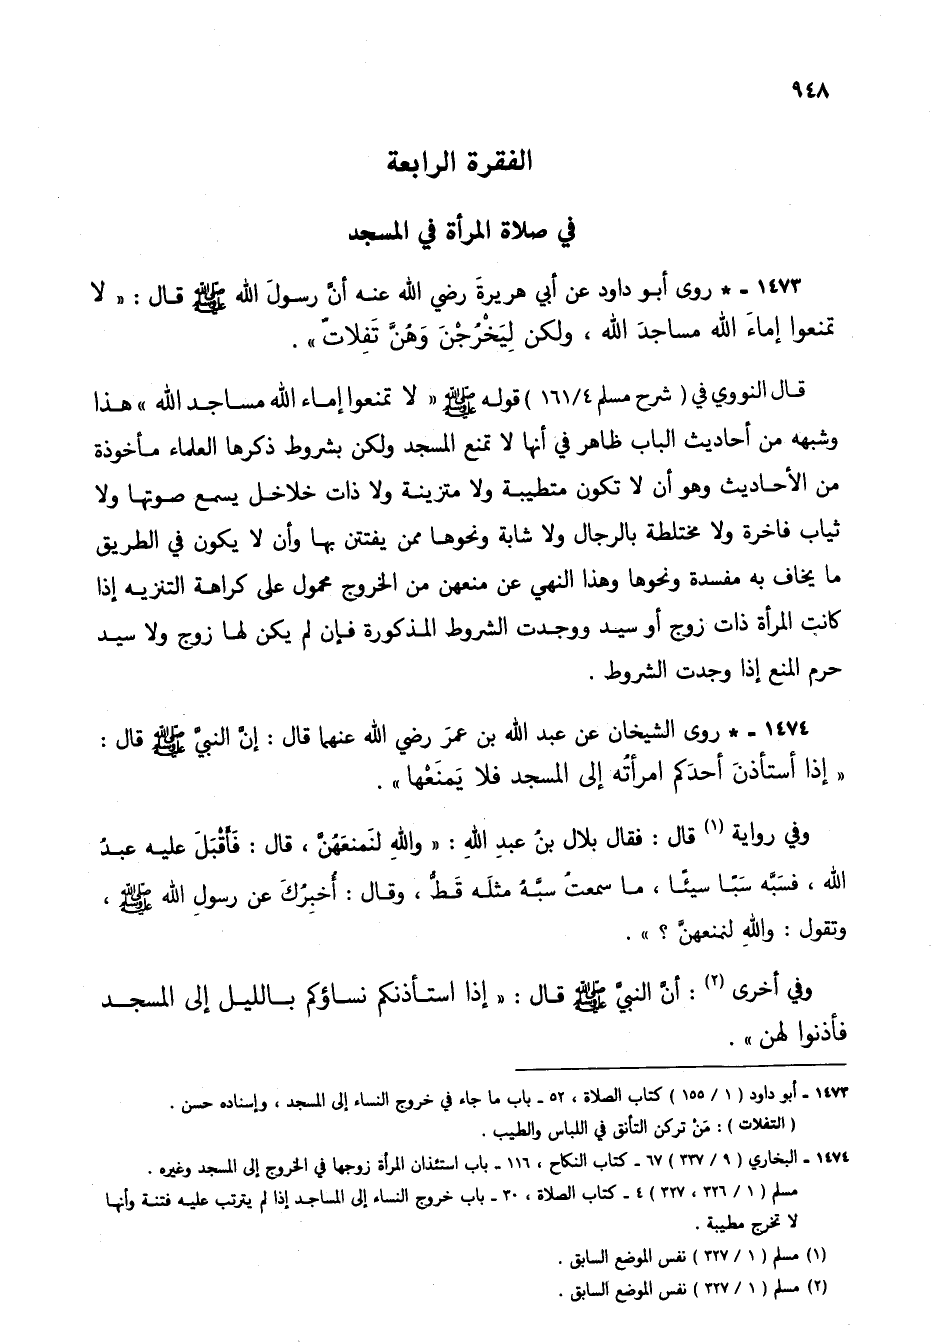 ٩٤٨
الفقرة الرابعة
في صلاة المرأة في المسجد
١٤٧٣ ـ * روى أبـو داود عن أبي هريرةَ رضي الله عنـه أنَّ رسـولَ الله ﷺ قـال : « لا
تمنعوا إماءَ الله مساجدَ الله ، ولكن لِيَخْرُجْنَ وَهُنَّ تَفِلاتٌ » .
قـال النووي في ( شرح مسلم ١٦١/٤ ) قولـه ﷺ « لا تمنعوا إمـاء الله مسـاجـد الله » هـذا
وشبهه من أحاديث الباب ظاهر في أنها لا تمنع المسجد ولكن بشروط ذكرها العلماء مـأخوذة
من الأحـاديث وهو أن لا تكون متطيبـة ولا متزينـة ولا ذات خلاخـل يسمع صـوتهـا ولا
ثياب فاخرة ولا مختلطة بالرجال ولا شابة ونحوهـا ممن يفتتن بهـا وأن لا يكون في الطريق
ما يخاف به مفسدة ونحوها وهذا النهي عن منعهن من الخروج محمول على كراهـة التنزيـه إذا
كانت المرأة ذات زوج أو سيـد ووجـدت الشروط المـذكورة فـإن لم يكن لهـا زوج ولا سيـد
حرم المنع إذا وجدت الشروط .
١٤٧٤ ـ * روى الشيخان عن عبد الله بن عمرَ رضي الله عنهما قال : إنَّ النبيَّ ﷺ قال :
« إذا أستأذنَ أحدَكم امرأتُه إلى المسجد فلا يَمنَعْها » .
وفي رواية (١) قال : فقال بلال بنُ عبدِ اللهِ : « واللهِ لنَمنعَهُنَّ ، قال : فَأَقْبَلَ عليـه عبـدُ
الله ، فسَبَّه سَبّـا سيئًـا ، مـا سمعتُ سبَّـهُ مثلَـه قَـطُّ ، وقـال : أُخبِرُكَ عن رسولِ الله ﷺ ،
وتقول : واللهِ لنمنعهنَّ ؟ » .
وفي أخرى (٢) : أنَّ النبيَّ ﷺ قـال : « إذا استـأذنكم نسـاؤكم بـالليـل إلى المسجـد
فأذنوا لهن » .
١٤٧٣ ـ أبو داود ( ١ / ١٥٥ ) كتاب الصلاة ، ٥٢ ـ باب ما جاء في خروج النساء إلى المسجد ، وإسناده حسن .
( التفلات ) : مَنْ تركن التأنق في اللباس والطيب .
١٤٧٤ ـ البخاري ( ٩ / ٣٣٧ ) ٦٧ ـ كتاب النكاح ، ١١٦ ـ باب استئذان المرأة زوجها في الخروج إلى المسجد وغيره .
مسلم ( ١ / ٣٢٦ ، ٣٢٧ ) ٤ ـ كتاب الصلاة ، ٣٠ ـ باب خروج النساء إلى المساجـد إذا لم يترتب عليـه فتنـة وأنهـا
لا تخرج مطيبة .
(١) مسلم ( ١ / ٣٢٧ ) نفس الموضع السابق .
(٢) مسلم ( ١ / ٣٢٧ ) نفس الموضع السابق .